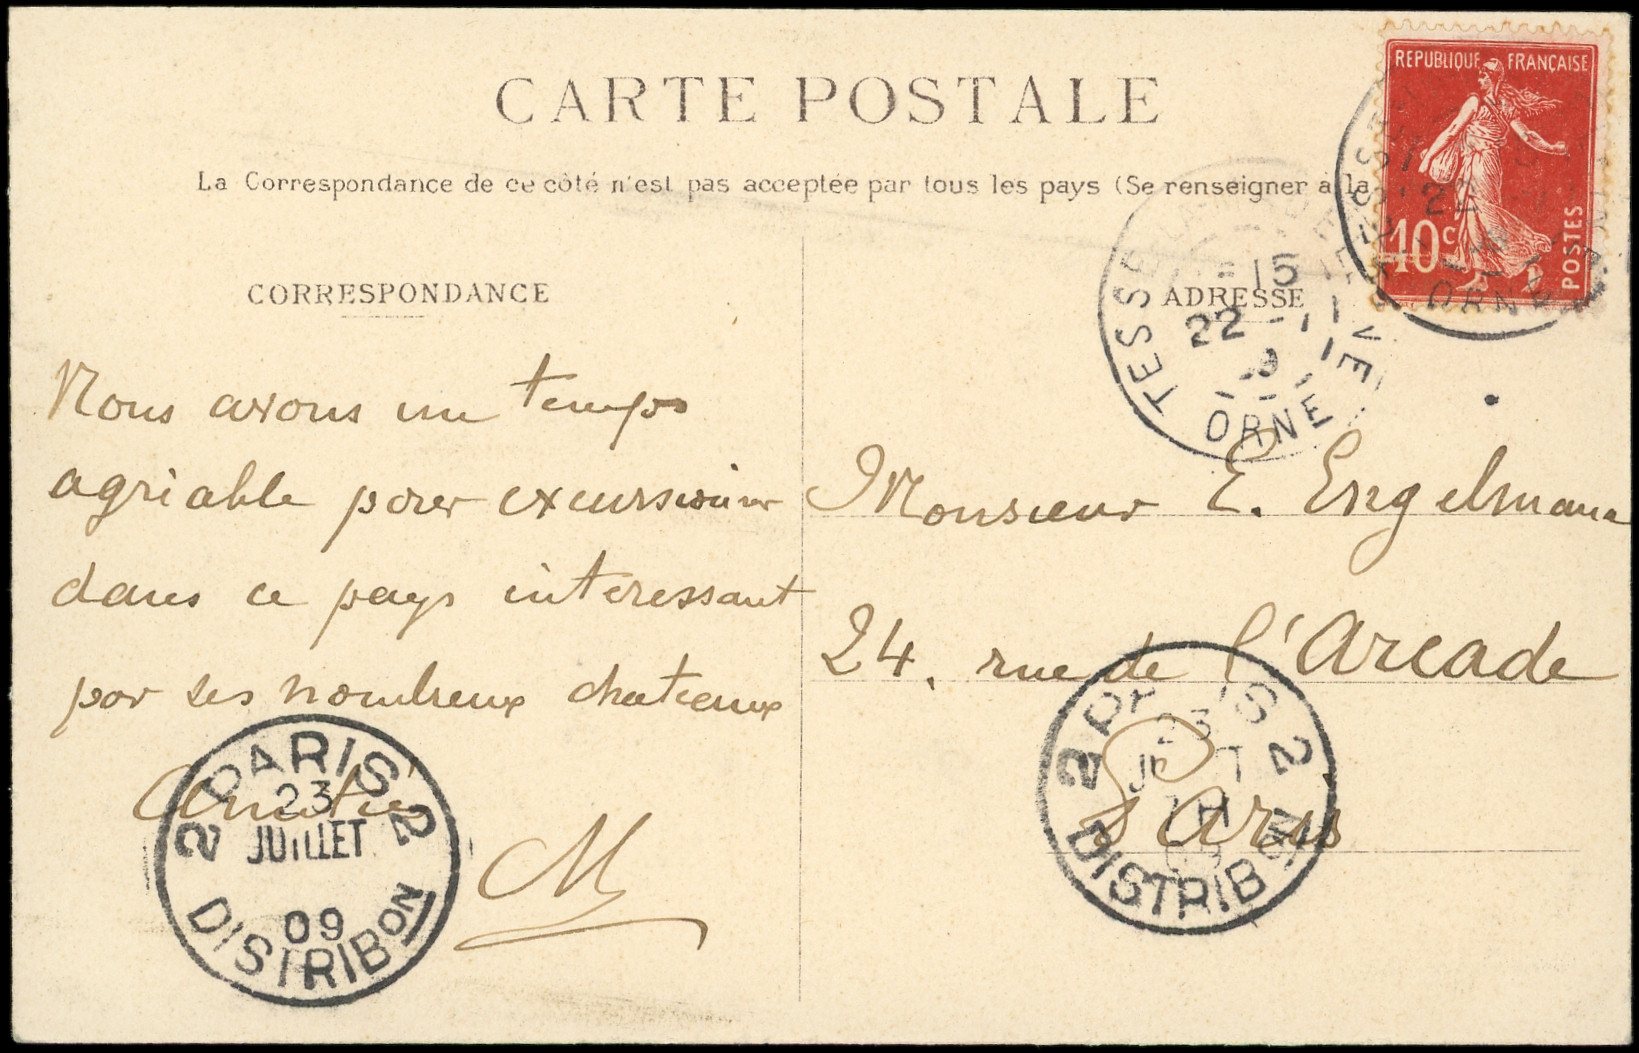 CARTE POSTALE
La Correspondance de ce côté n'est pas acceptée par tous les pays (Se renseigner à la
CORRESPONDANCE
ADRESSE
REPUBLIQUE FRANÇAISE
10c
POSTES
22
ORNE
TESSE
15
22 -
9
ORNE
Nous avons un temps
agriable pour excursions
dans ce pays interessant
par ses nombreux chateaux
Amitié
M
Monsieur E. Engelmann
24, rue de l'Arcade
Paris
2 PARIS 2
23
JUILLET
09
DISTRIBON
2 PA IS 2
23
JU T
DISTRIBON